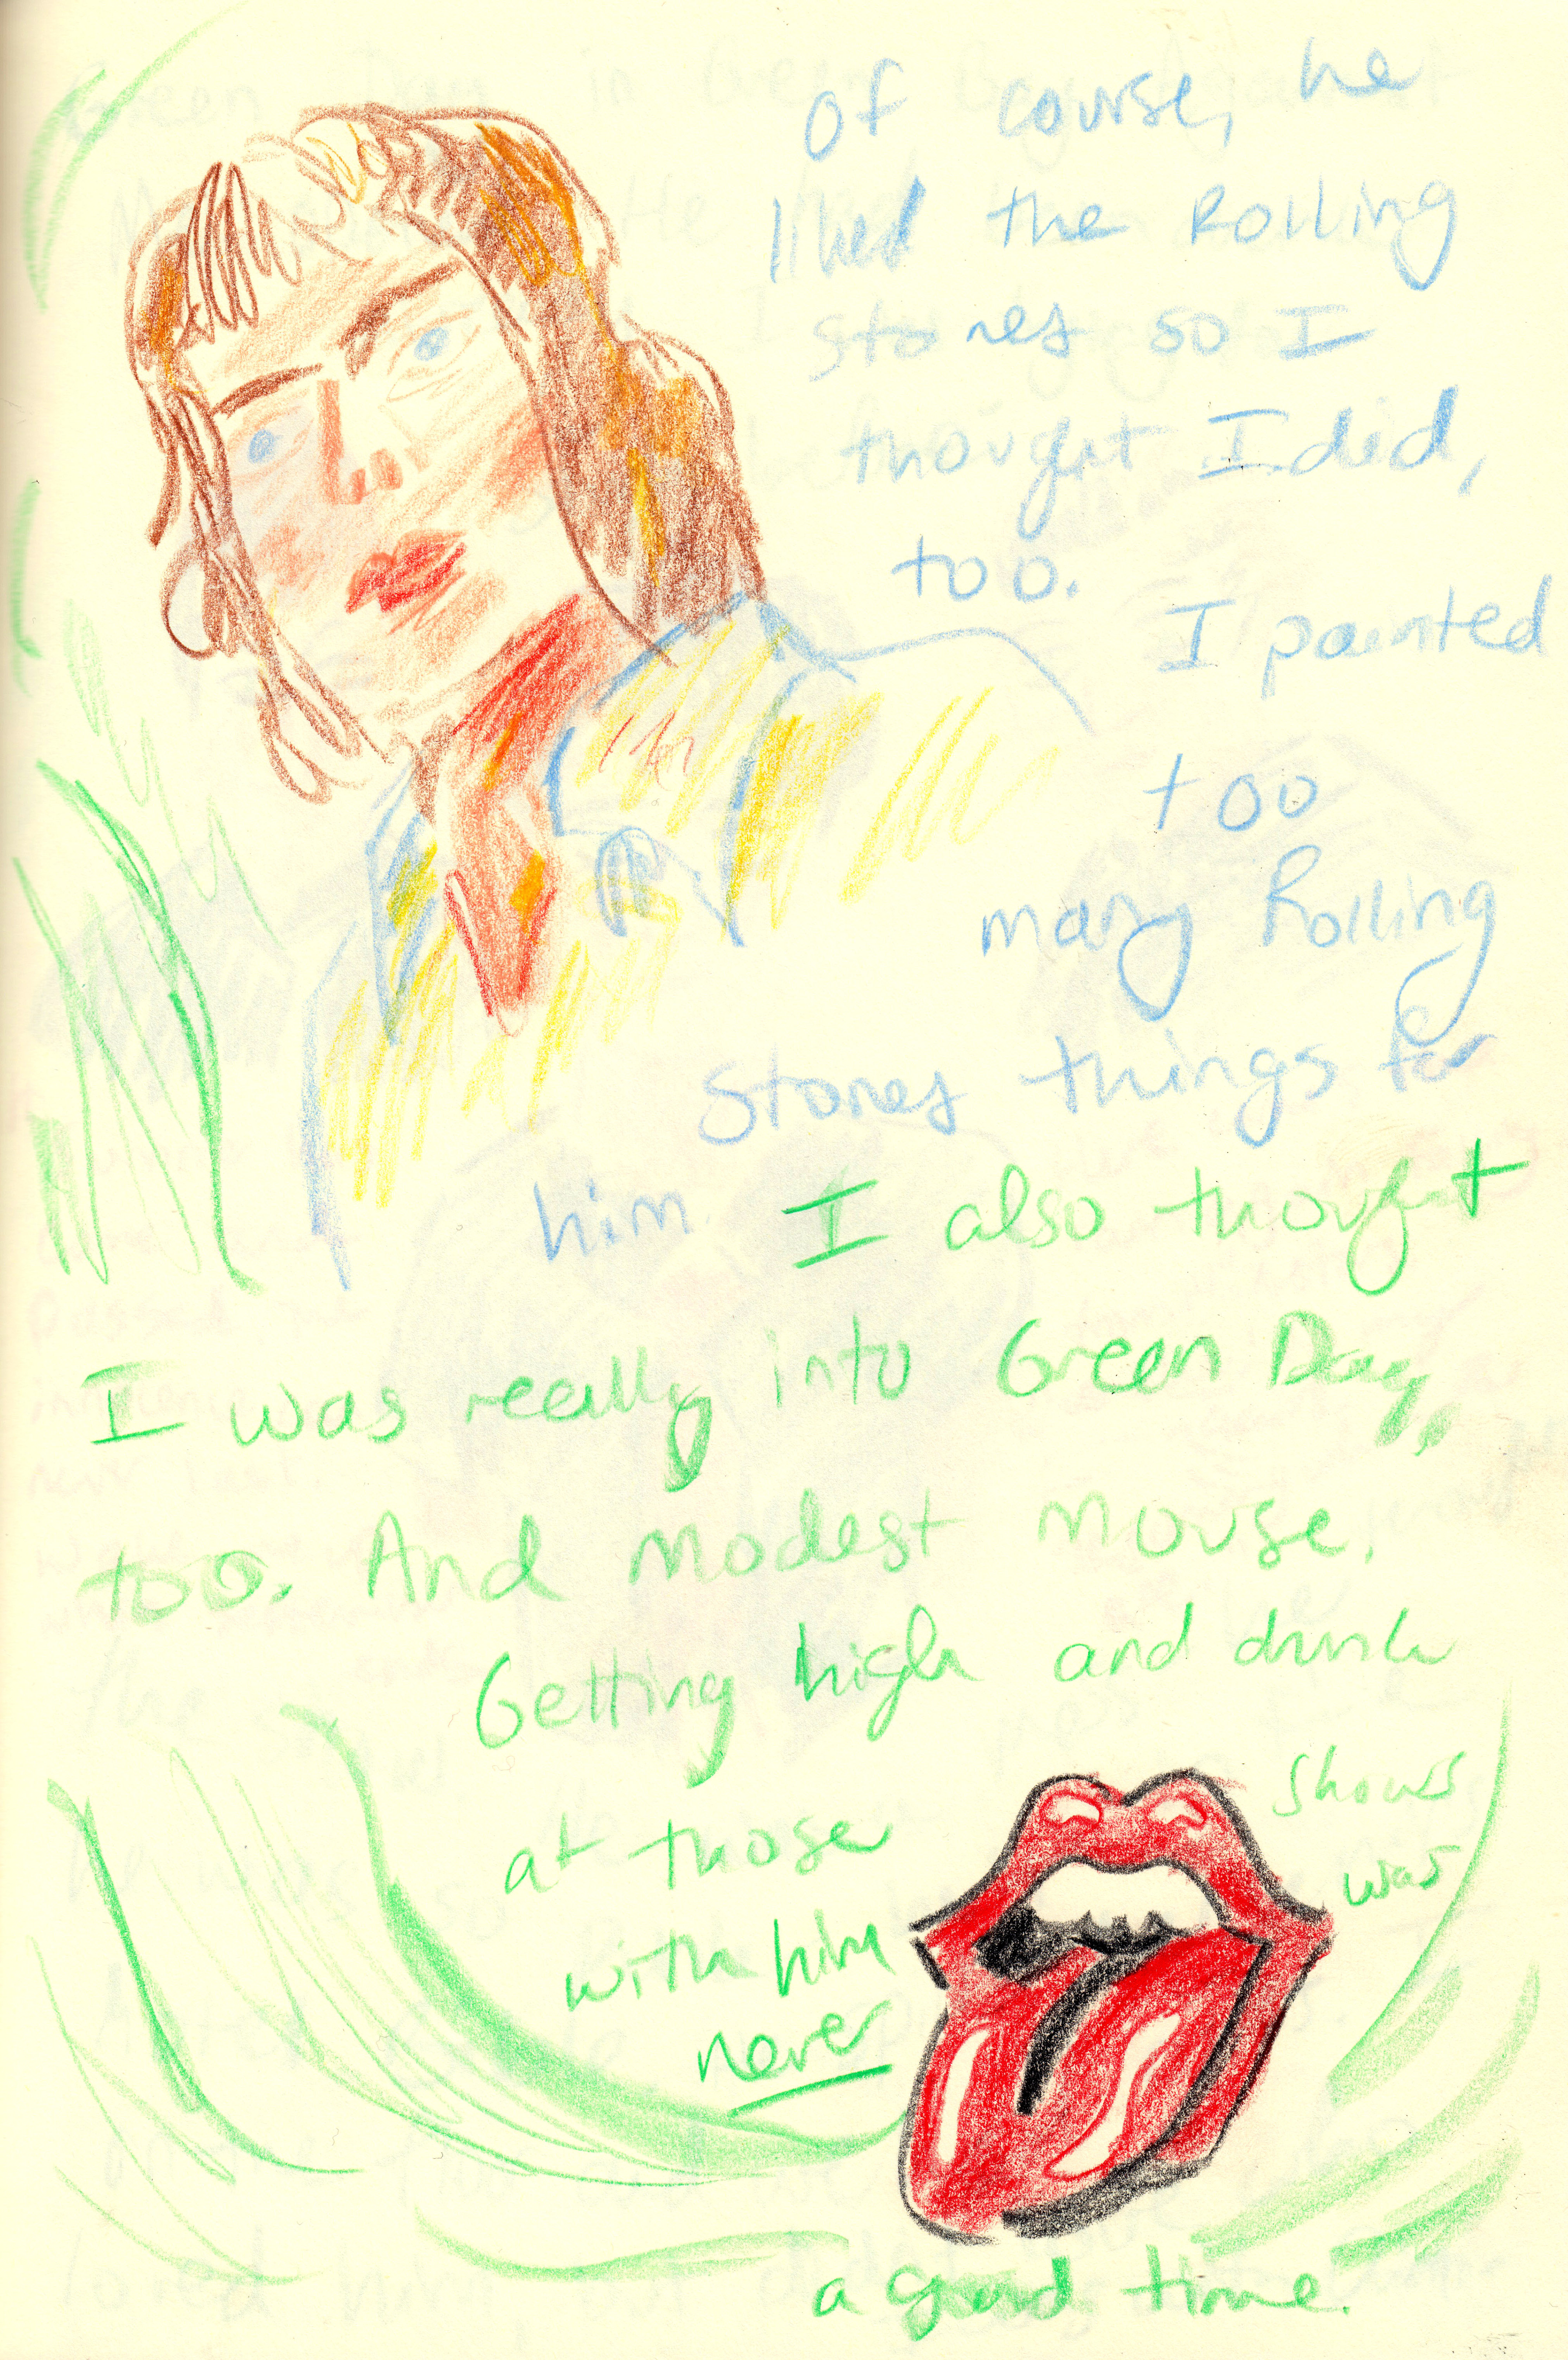 Of course, he
liked the Rolling
Stones so I
thought I did,
too.
I painted
too
many Rolling
Stones things for
him. I also thought
I was really into Green Day,
too. And Modest Mouse.
Getting high and drunk
at those shows
with him was
never
a good time.